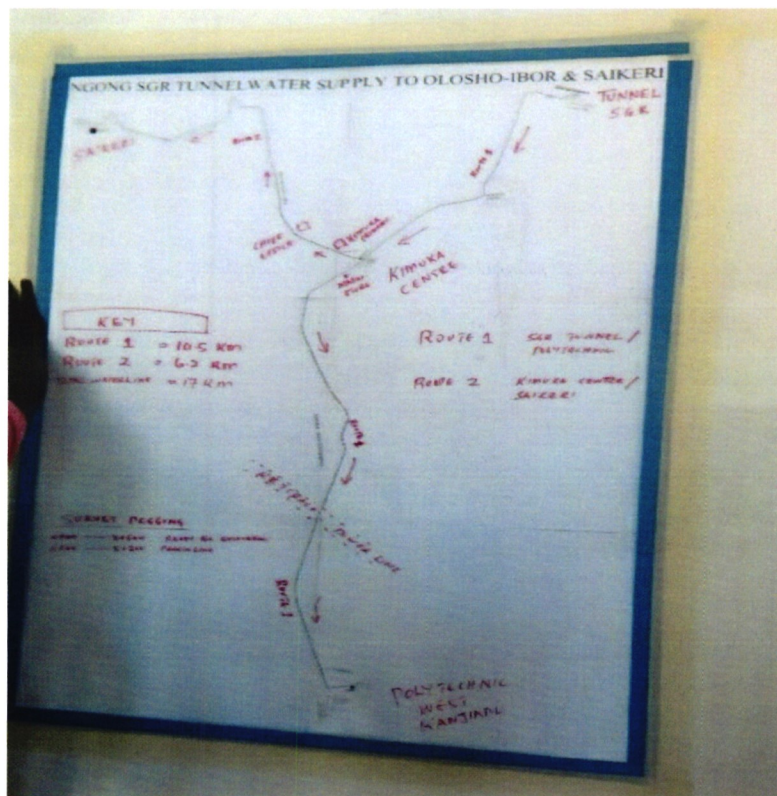 NGONG SGR TUNNEL WATER SUPPLY TO OLOSHO-IBOR & SAIKERI
TUNNEL
SGR
SAIKERI
ROUTE 2
ROUTE 1
CHIEF
OFFICE
KIMUKA
PRIMARY
KIMUKA
CENTRE
KEY
ROUTE 1 = 10.5 KM
ROUTE 2 = 6.5 KM
TOTAL WATERLINE = 17 KM
ROUTE 1 SGR TUNNEL/
POLYTECHNIC
ROUTE 2 KIMUKA CENTER/
SAIKERI
ROUTE 1
POWER LINE
SURVEY PEGGING
ROUTE 1
POLYTECHNIC
WEST